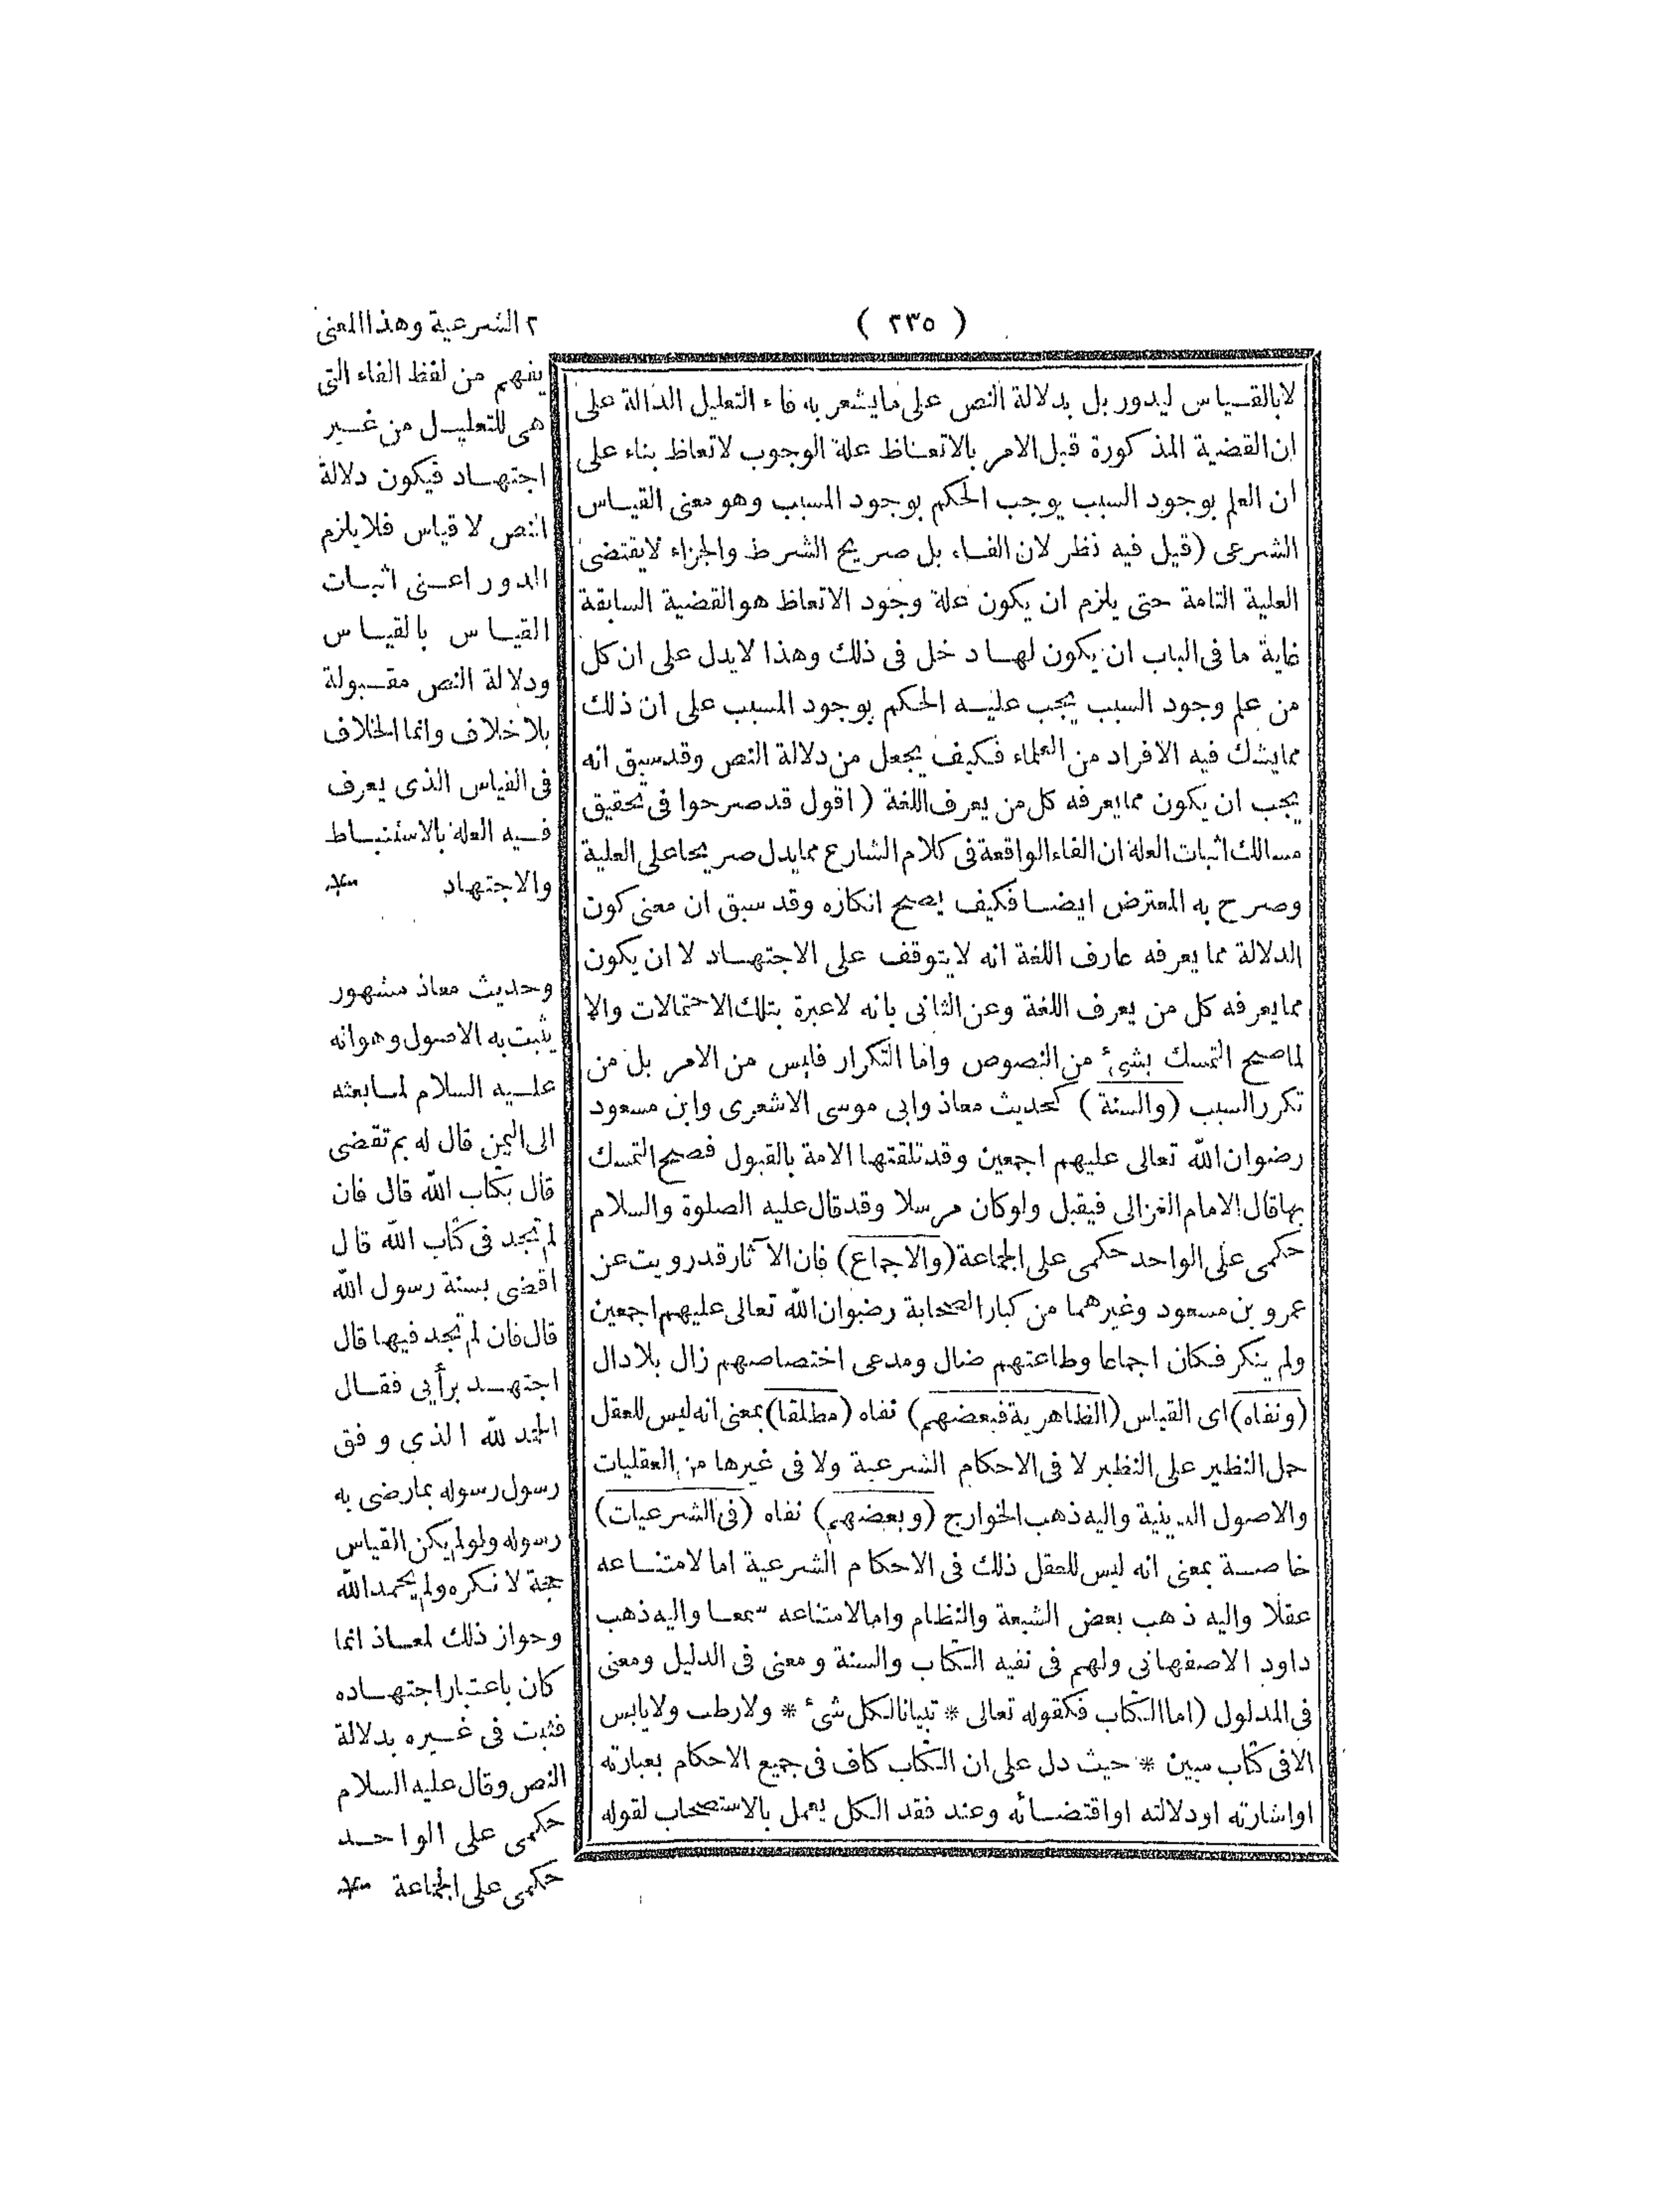 ( ٢٣٥ )
لابالقياس ليدور بل بدلالة النص على مايشعر به فاء التعليل الدالة على
ان القضية المذكورة قبل الامر بالاتعاظ علة الوجوب لاتعاظ بناء على
ان العلم بوجود السبب يوجب الحكم بوجود المسبب وهو معنى القياس
الشرعى (قيل فيه نظر لان الفاء بل صريح الشرط والجزاء لايقتضى
العلية التامة حتى يلزم ان يكون علة وجود الاتعاظ هو القضية السابقة
غاية ما فى الباب ان يكون لها دخل فى ذلك وهذا لايدل على ان كل
من علم وجود السبب يجب عليه الحكم بوجود المسبب على ان ذلك
ممايشك فيه الافراد من العلماء فكيف يجعل من دلالة النص وقدسبق انه
يجب ان يكون ممايعرفه كل من يعرف اللغة (اقول قد صرحوا فى تحقيق
مسالك اثبات العلة ان الفاء الواقعة فى كلام الشارع ممايدل صريحا على العلية
وصرح به المعترض ايضا فكيف يصح انكاره وقد سبق ان معنى كون
الدلالة مما يعرفه عارف اللغة انه لايتوقف على الاجتهاد لا ان يكون
ممايعرفه كل من يعرف اللغة وعن الثانى بانه لاعبرة بتلك الاحتمالات والا
لماصح التمسك بشئ من النصوص واما التكرار فليس من الامر بل من
تكرر السبب (والسنة) كحديث معاذ وابى موسى الاشعرى وابن مسعود
رضوان الله تعالى عليهم اجمعين وقدتلقتها الامة بالقبول فصح التمسك
بها قال الامام الغزالى فيقبل ولوكان مرسلا وقدقال عليه الصلوة والسلام
حكمى على الواحد حكمى على الجماعة (والاجماع) فان الآثار قدرويت عن
عمر و بن مسعود وغيرهما من كبار الصحابة رضوان الله تعالى عليهم اجمعين
ولم ينكر فكان اجماعا وطاعتهم ضال ومدعى اختصاصهم زال بلا دال
(ونفاه) اى القياس (الظاهرية فبعضهم) نفاه (مطلقا) بمعنى انه ليس للعقل
حمل النظير على النظير لا فى الاحكام الشرعية ولا فى غيرها من العقليات
والاصول الدينية واليه ذهب الخوارج (وبعضهم) نفاه (فى الشرعيات)
خاصة بمعنى انه ليس للعقل ذلك فى الاحكام الشرعية اما لامتناعه
عقلا واليه ذهب بعض الشيعة والنظام واما لامتناعه سمعا واليه ذهب
داود الاصفهانى ولهم فى نفيه الكتاب والسنة و معنى فى الدليل ومعنى
فى المدلول (اما الكتاب فكقوله تعالى * تبيانا لكل شئ * ولارطب ولايابس
الافى كتاب مبين * حيث دل على ان الكتاب كاف فى جميع الاحكام بعبارته
اواشارته اودلالته اواقتضائه وعند فقد الكل يعمل بالاستصحاب لقوله
٢ الشرعية وهذا المعنى
يفهم من لفظ الفاء التى
هى للتعليل من غير
اجتهاد فيكون دلالة
النص لا قياس فلايلزم
الدور اعنى اثبات
القياس بالقياس
ودلالة النص مقبولة
بلاخلاف وانما الخلاف
فى القياس الذى يعرف
فيه العلة بالاستنباط
والاجتهاد
وحديث معاذ مشهور
يثبت به الاصول وهوانه
عليه السلام لما بعثه
الى اليمن قال له بم تقضى
قال بكتاب الله قال فان
لم تجد فى كتاب الله قال
اقضى بسنة رسول الله
قال فان لم تجد فيها قال
اجتهد برأيى فقال
الحمد لله الذى وفق
رسول رسوله بمارضى به
رسوله ولولم يكن القياس
حجة لانكره ولم يحمدالله
وجواز ذلك لمعاذ انما
كان باعتبار اجتهاده
فثبت فى غيره بدلالة
النص وقال عليه السلام
حكمى على الواحد
حكمى على الجماعة